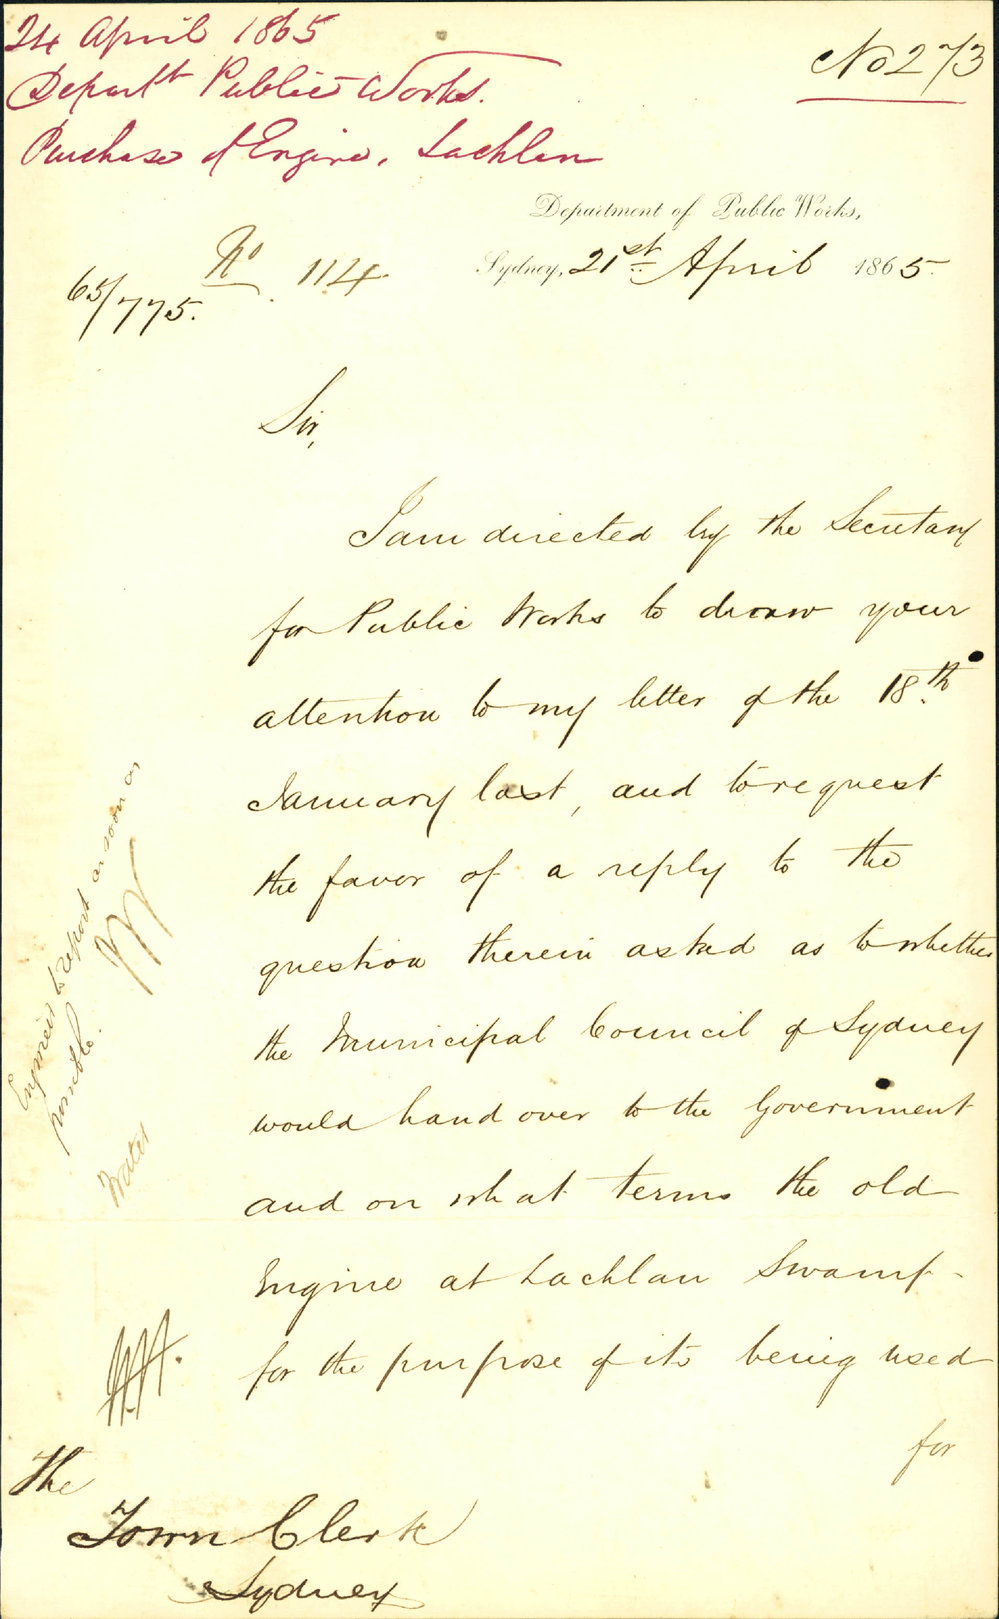 24 April 1865
Departt Public Works.
Purchase of Engine, Lachlan
No 273
Department of Public Works,
Sydney, 21st April 1865.
No 114
65/775.
Sir,
I am directed by the Secretary
for Public Works to draw your
attention to my letter of the 18th
January last, and to request
the favor of a reply to the
question therein asked as to whether
the Municipal Council of Sydney
would hand over to the Government
and on what terms the old
Engine at Lachlan Swamp
for the purpose of its being used
for
Engineer to report as soon as
possible.
Water
The
Town Clerk
Sydney